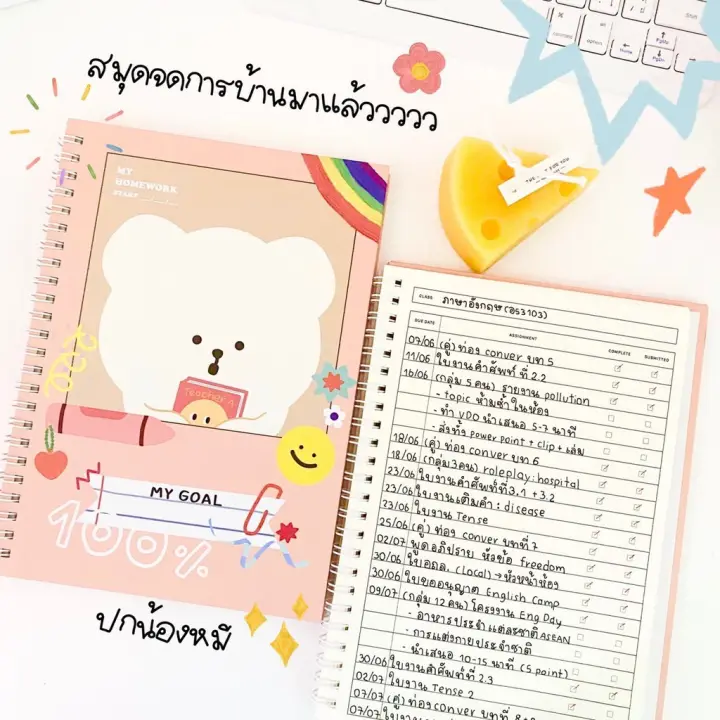 สมุดจดการบ้านมาแล้วววววว
MY
HOMEWORK
DIARY
2022
Teacher A
MY GOAL
100%
ปกน้องหมี
CLASS ภาษาอังกฤษ (อร3103)
DUE DATE ASSIGNMENT COMPLETE SUBMITTED
07/06 (คู่) ท่อง conver บท 5
11/06 ใบงานคำศัพท์ ที่ 2.2
16/06 (กลุ่ม 5 คน) รายงาน pollution
- topic ห้ามซ้ำในห้อง
- ทำ VDO นำเสนอ 5-7 นาที
- ส่งทั้ง power point + clip + เล่ม
18/06 (คู่) ท่อง conver บท 6
18/06 (กลุ่ม 3 คน) roleplay: hospital
23/06 ใบงานคำศัพท์ที่ 3.1 + 3.2
23/06 ใบงานเติมคำ : disease
23/06 ใบงาน Tense
25/06 (คู่) ท่อง conver บทที่ 7
02/07 พูดอภิปราย หัวข้อ freedom
30/06 ใบอฉล. (Local) → หัวหน้าห้อง
30/06 ใบขออนุญาต English Camp
09/07 (กลุ่ม 12 คน) โครงงาน Eng Day
- อาหารประจำแต่ละชาติ ASEAN
- การแต่งกายประจำชาติ
- นำเสนอ 10-15 นาที (5 point)
30/06 ใบงานคำศัพท์ที่ 2.3
02/07 ใบงาน Tense 2
07/07 (คู่) ท่อง conver บทที่
07/07